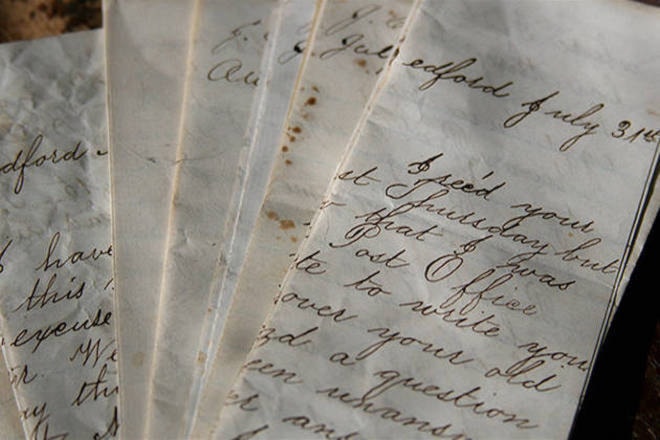 dford
I have
this
excuse
r. We
ay th
J.
Au
J.
J. Jul
edford July 31st
I rec'd your
st Thursday but
that I was
Post Office
te to write you
over your old
nd a question
een unansw
er an